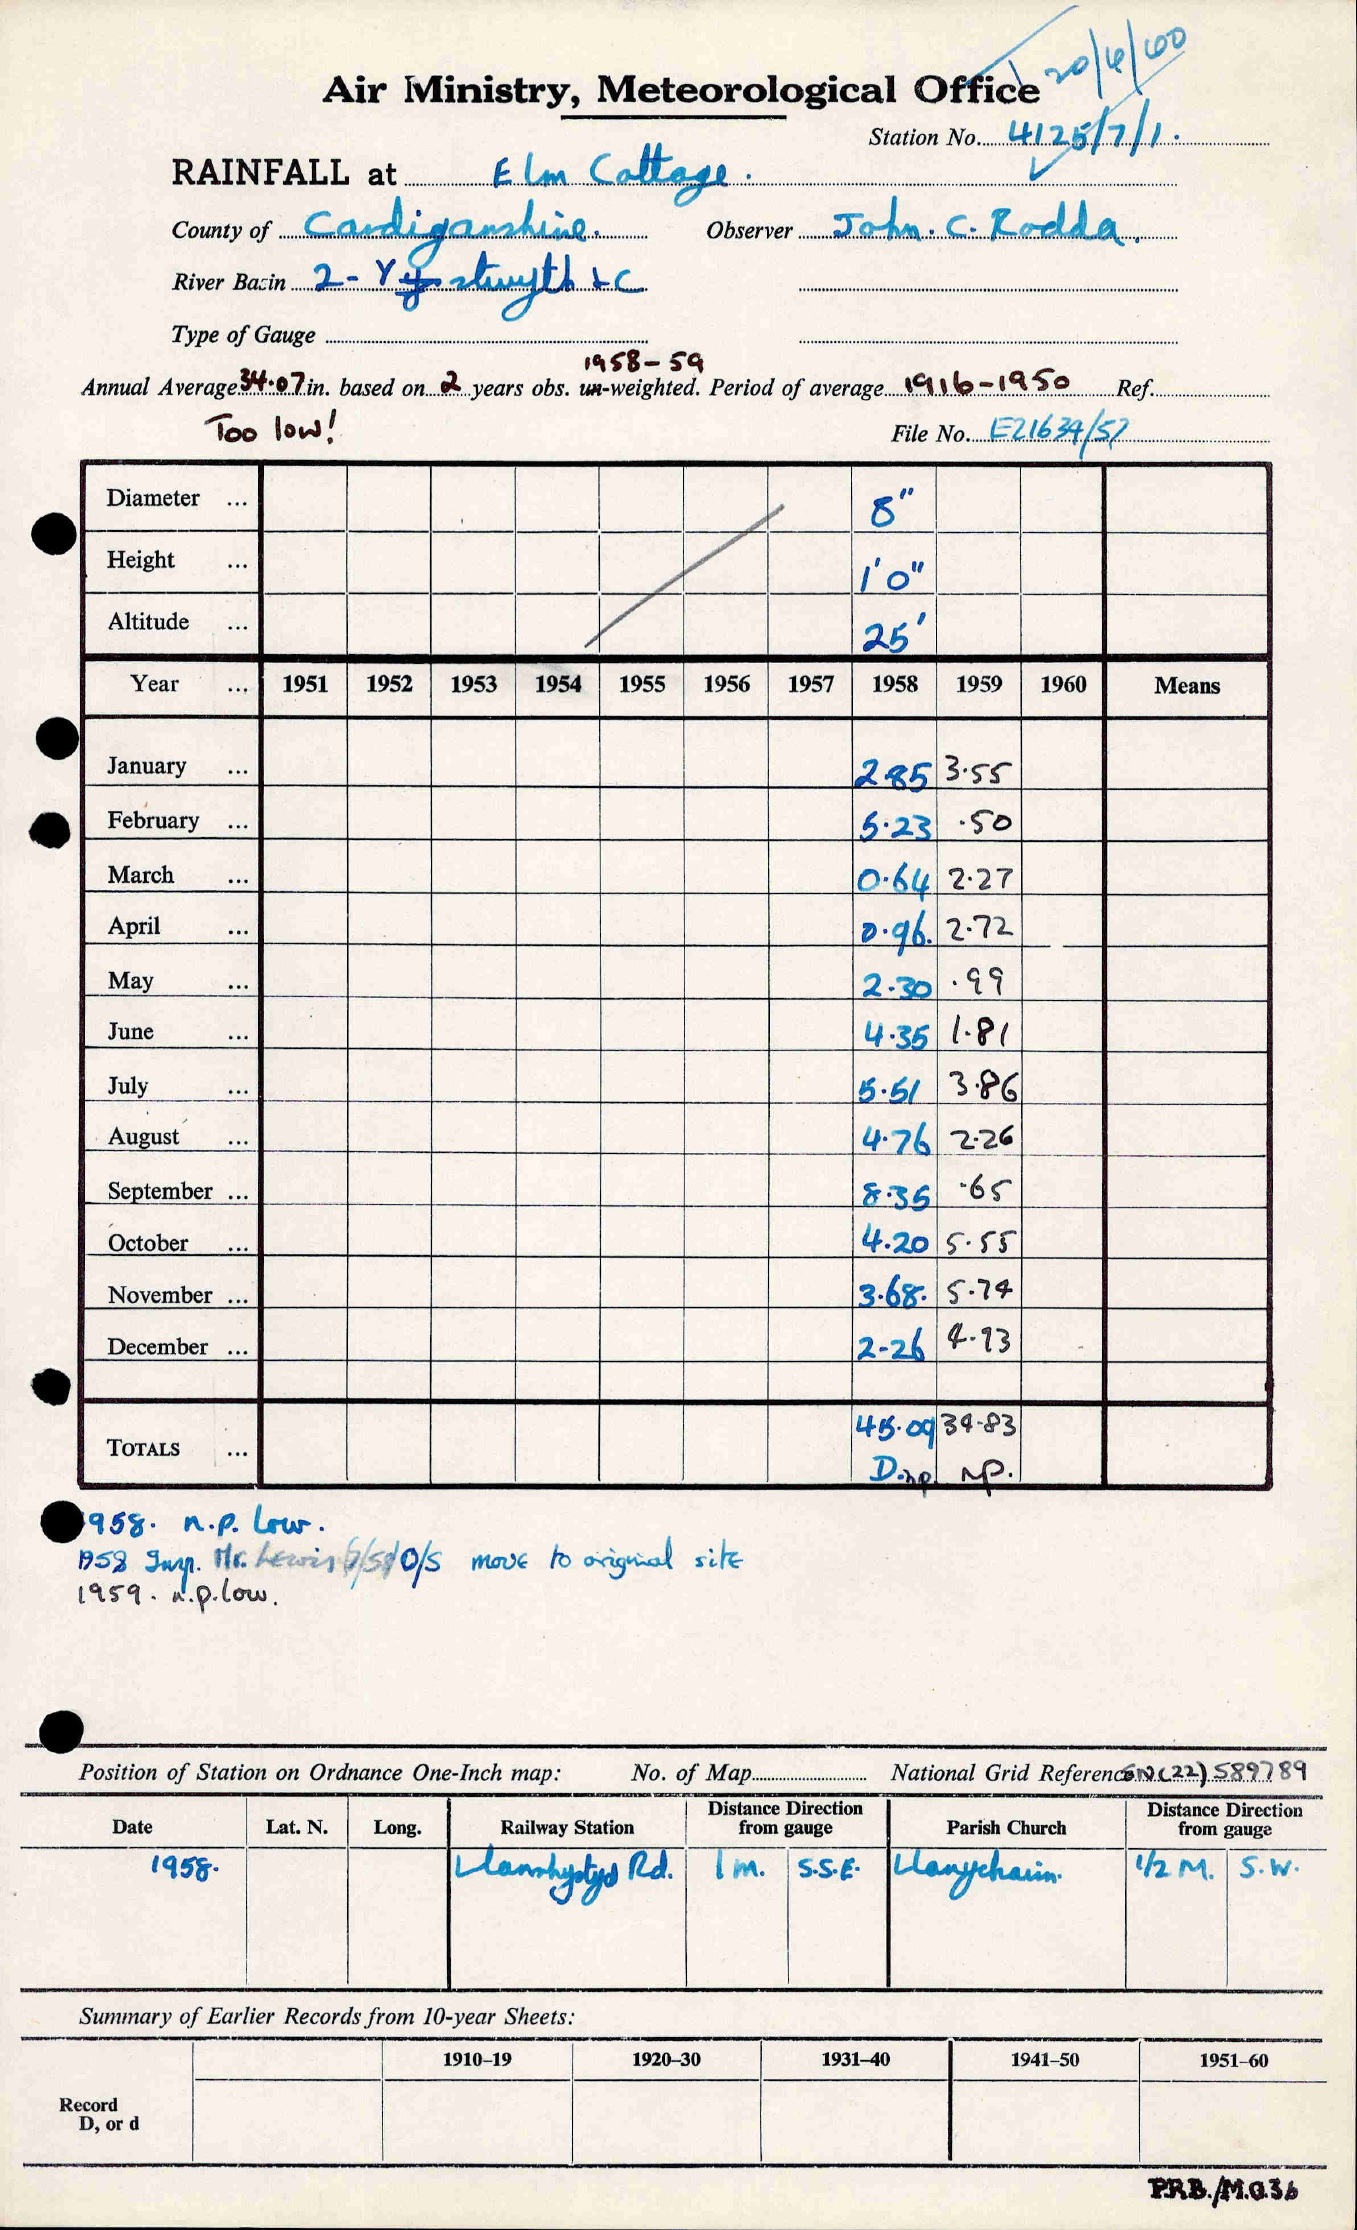 20/6/60
Air Ministry, Meteorological Office
Station No. 4125/7/1.
RAINFALL at Elm Cottage.
County of Cardiganshire. Observer John. C. Rodda.
River Basin 2 - Ystwyth & C
Type of Gauge
1958-59
Annual Average 34.07 in. based on 2 years obs. un-weighted. Period of average 1916-1950 Ref.
Too low! File No. E21634/57
Diameter ... 8"
Height ... 1'0"
Altitude ... 25'
Year ... 1951 1952 1953 1954 1955 1956 1957 1958 1959 1960 Means
January ... 2.85 3.55
February ... 5.23 .50
March ... 0.64 2.27
April ... 0.96. 2.72
May ... 2.30 .99
June ... 4.35 1.81
July ... 5.51 3.86
August ... 4.76 2.26
September ... 8.35 .65
October ... 4.20 5.55
November ... 3.68. 5.74
December ... 2-26 4.93
TOTALS ... 45.09 34.83
D.np. np.
1958. n.p. low.
1958 Insp. Mr. Lewis O/S move to original site
1959. n.p. low.
Position of Station on Ordnance One-Inch map: No. of Map National Grid Reference SN(22) 589789
Date Lat. N. Long. Railway Station Distance Direction from gauge Parish Church Distance Direction from gauge
1958. Llanrhystyd Rd. 1 m. S.S.E. Llanychaiin. 1/2 M. S.W.
Summary of Earlier Records from 10-year Sheets:
1910–19 1920–30 1931–40 1941–50 1951–60
Record
D, or d
P.R.B./M.O.36